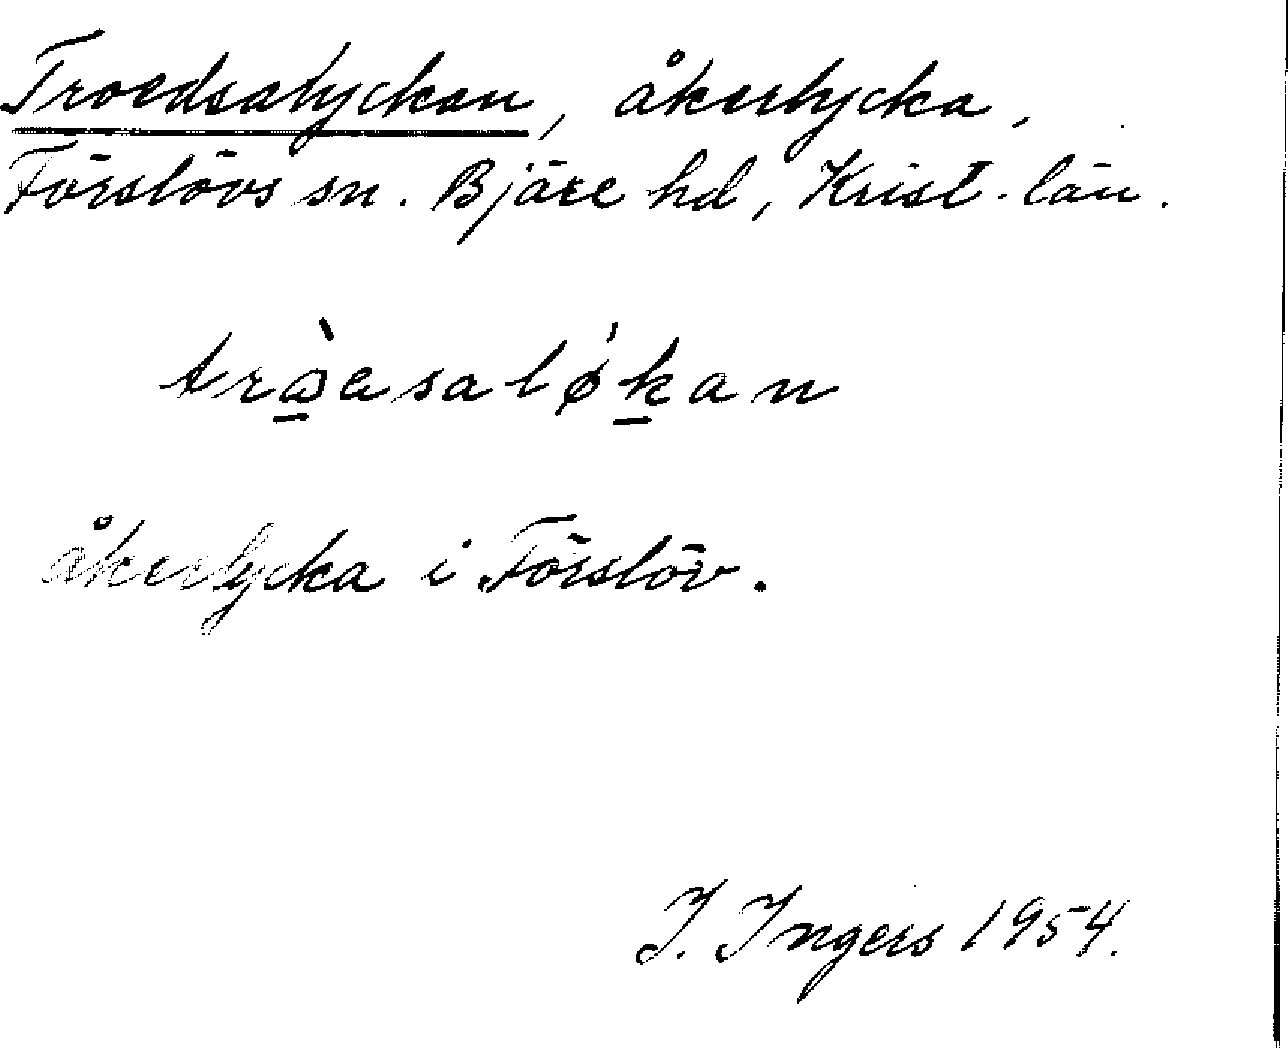 Troedsalyckan, åkerlycka,
Förslövs sn. Bjäre hd, Krist. län.
åkerlycka i Förslöv.
I. Ingers 1954.